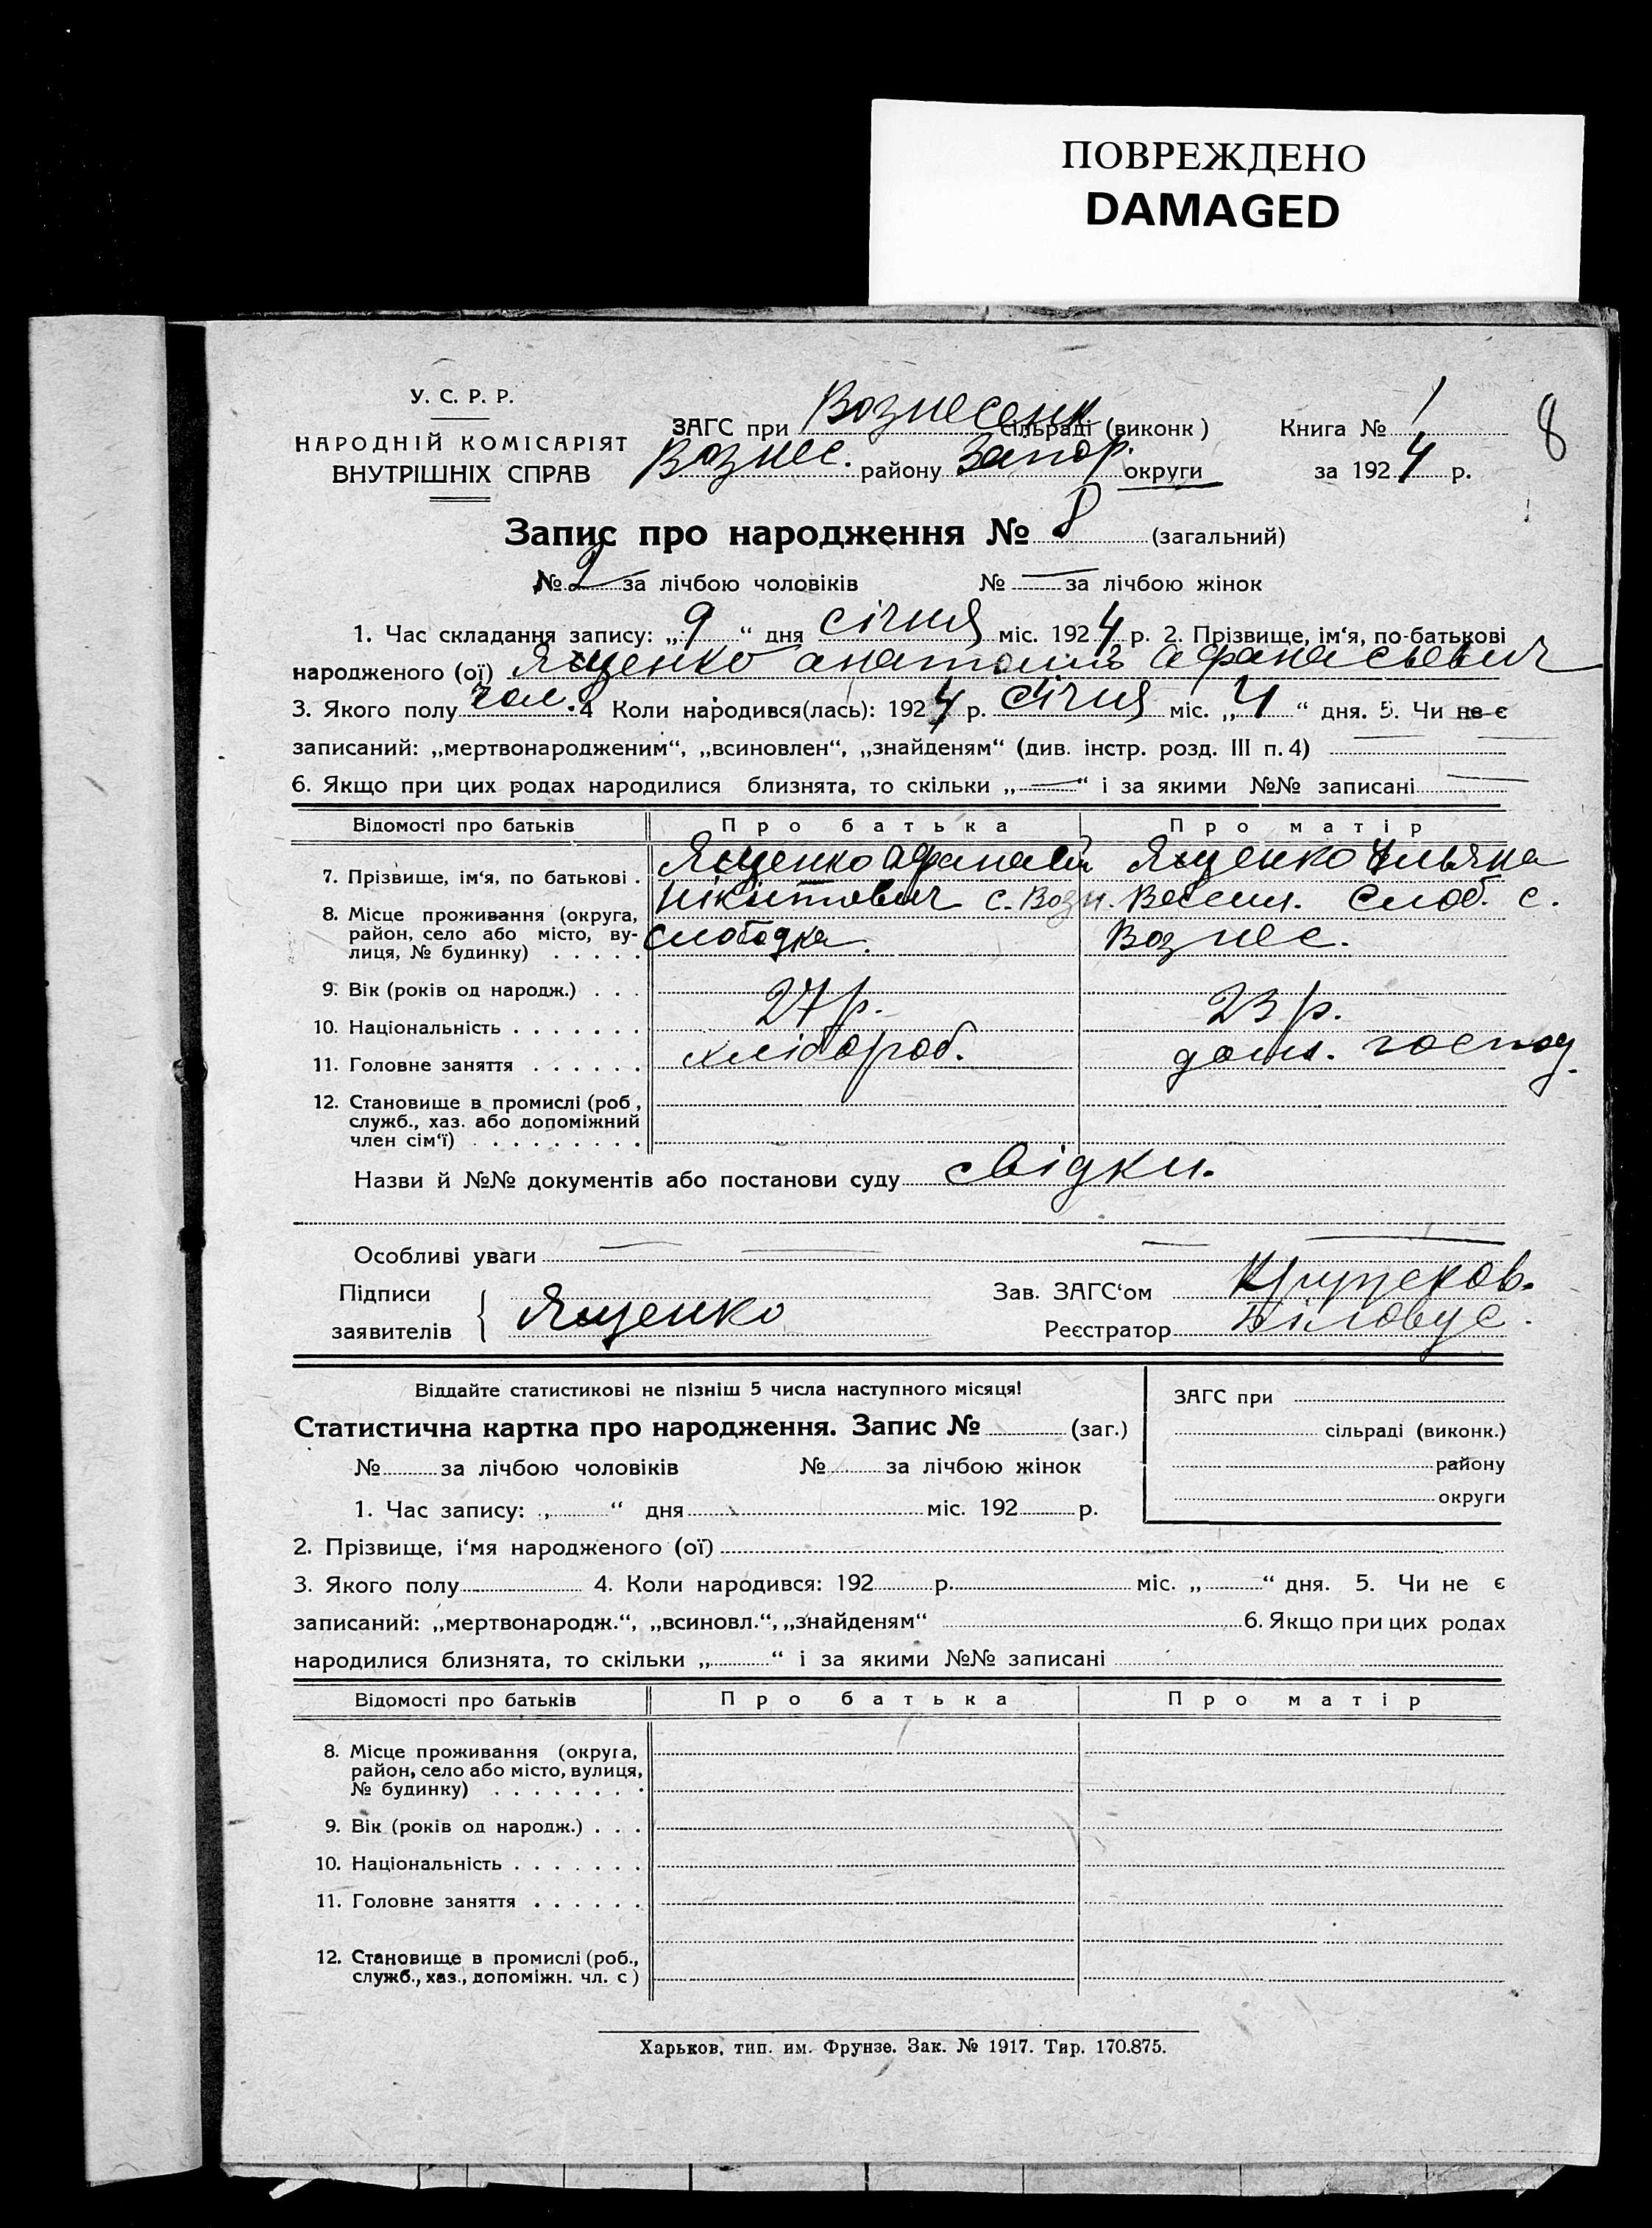 ПОВРЕЖДЕНО
DAMAGED
У. С. Р. Р.
НАРОДНІЙ КОМІСАРІЯТ
ВНУТРІШНІХ СПРАВ
ЗАГС при Вознесенк сільраді (виконк)
Вознес. району Запор. округи
Книга № 1
за 1924 р.
8
Запис про народження № 8 (загальний)
№ 2 за лічбою чоловіків № — за лічбою жінок
1. Час складання запису: „9“ дня січня міс. 1924 р. 2. Прізвище, ім‘я, по-батькові
народженого (ої) Ященко анатолий афанасьевич
3. Якого полу чол. 4 Коли народився(лась): 1924 р. січня міс. „4“ дня. 5. Чи не є
записаний: „мертвонародженим“, „всиновлен“, „знайденям“ (див. інстр. розд. III п. 4) —
6. Якщо при цих родах народилися близнята, то скільки „—“ і за якими №№ записані —
Відомості про батьків Про батька Про матір
7. Прізвище, ім‘я, по батькові . Ященко афанасій Ященко
8. Місце проживання (округа, нікітович с. Возн. Весел. Слоб. с.
район, село або місто, ву- слободка. Вознес.
лиця, № будинку) . . . . .
9. Вік (років од народж.) . . . 27 р. 23 р.
10. Національність . . . . . . .
11. Головне заняття . . . . . . хлібороб. дом. господ.
12. Становище в промислі (роб,
служб., хаз. або допоміжний
член сім‘ї) . . . . . . . . .
Назви й №№ документів або постанови суду свідки.
Особливі уваги —
Підписи
заявителів { Ященко
Зав. ЗАГС‘ом
Реєстратор Біловус.
Віддайте статистикові не пізніш 5 числа наступного місяця!
Статистична картка про народження. Запис № (заг.)
№ за лічбою чоловіків № за лічбою жінок
1. Час запису: „ “ дня міс. 192 р.
ЗАГС при
сільраді (виконк.)
району
округи
2. Прізвище, і‘мя народженого (ої)
3. Якого полу 4. Коли народився: 192 р. міс. „ “ дня. 5. Чи не є
записаний: „мертвонародж.“, „всиновл.“, „знайденям“ 6. Якщо при цих родах
народилися близнята, то скільки „ “ і за якими №№ записані
Відомості про батьків Про батька Про матір
8. Місце проживання (округа,
район, село або місто, вулиця,
№ будинку) . . . . . . . .
9. Вік (років од народж.) . . .
10. Національність . . . . . . .
11. Головне заняття . . . . . .
12. Становище в промислі (роб.,
служб., хаз., допоміжн. чл. с)
Харьков, тип. им. Фрунзе. Зак. № 1917. Тир. 170.875.